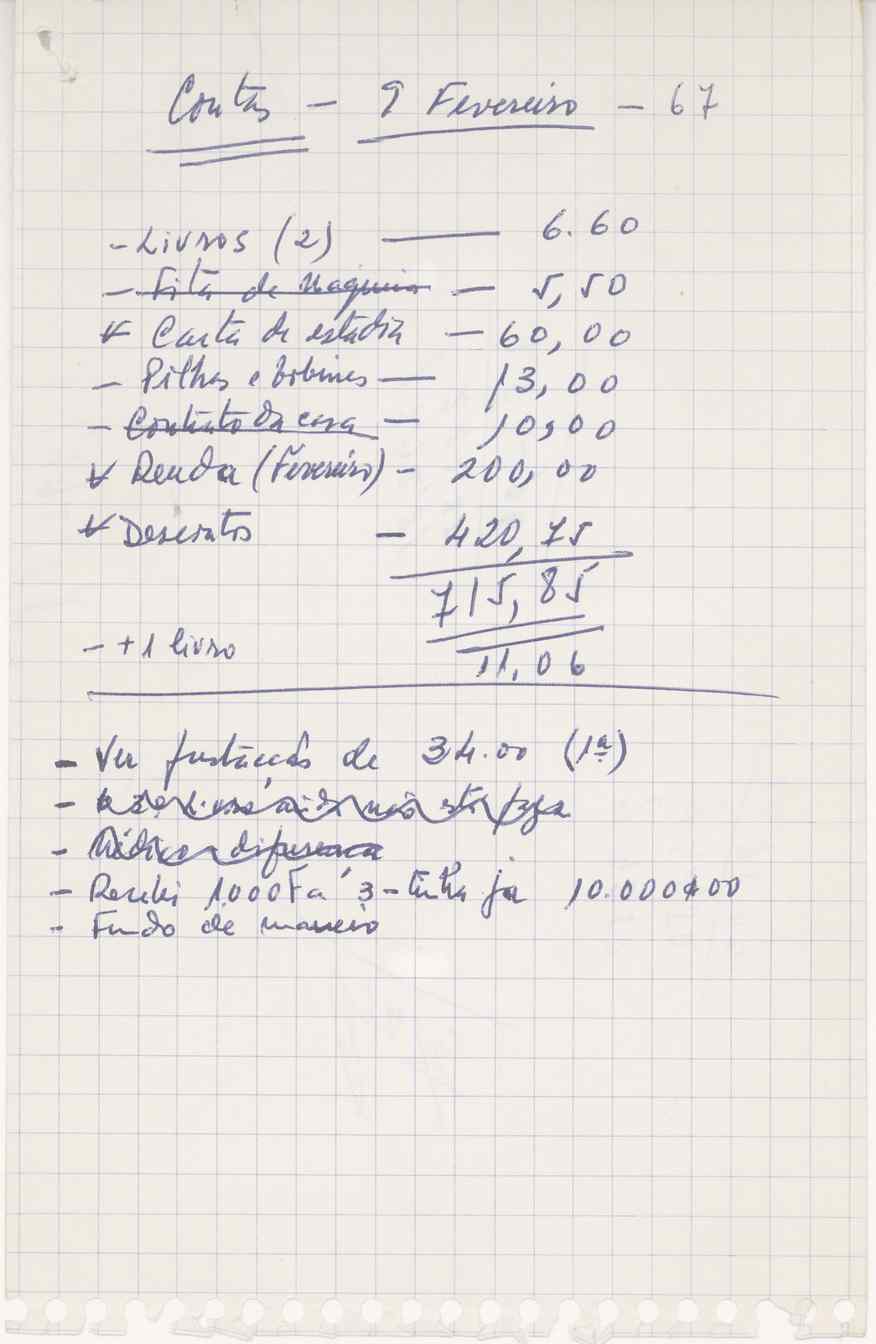 Contas - 9 Fevereiro - 67
- Livros (2) — 6.60
- Fita de maquina — 5,50
Carta de estadia — 60,00
- Pilhas e bobines — 13,00
- Contrato da casa — 10,00
Renda (Fevereiro) - 200,00
Descontos — 420,75
715,85
- +1 livro
11,06
- Ver prestações de 34.00 (1ª)
- não está paga
- Médico - diferença
- Recebi 1.000F a 3 - tinha já 10.000$00
- Fundo de maneio